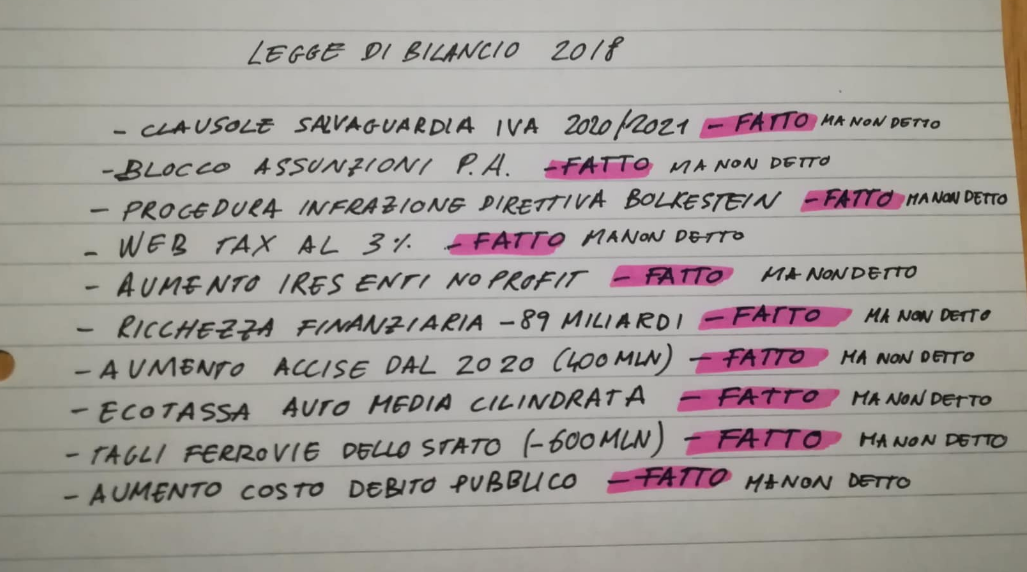 LEGGE DI BILANCIO 2018
- CLAUSOLE SALVAGUARDIA IVA 2020/2021 - FATTO MA NON DETTO
- BLOCCO ASSUNZIONI P.A. - FATTO MA NON DETTO
- PROCEDURA INFRAZIONE DIRETTIVA BOLKESTEIN - FATTO MA NON DETTO
- WEB TAX AL 3% - FATTO MA NON DETTO
- AUMENTO IRES ENTI NO PROFIT - FATTO MA NON DETTO
- RICCHEZZA FINANZIARIA -89 MILIARDI - FATTO MA NON DETTO
- AUMENTO ACCISE DAL 2020 (400 MLN) - FATTO MA NON DETTO
- ECOTASSA AUTO MEDIA CILINDRATA - FATTO MA NON DETTO
- TAGLI FERROVIE DELLO STATO (-600 MLN) - FATTO MA NON DETTO
- AUMENTO COSTO DEBITO PUBBLICO - FATTO MA NON DETTO